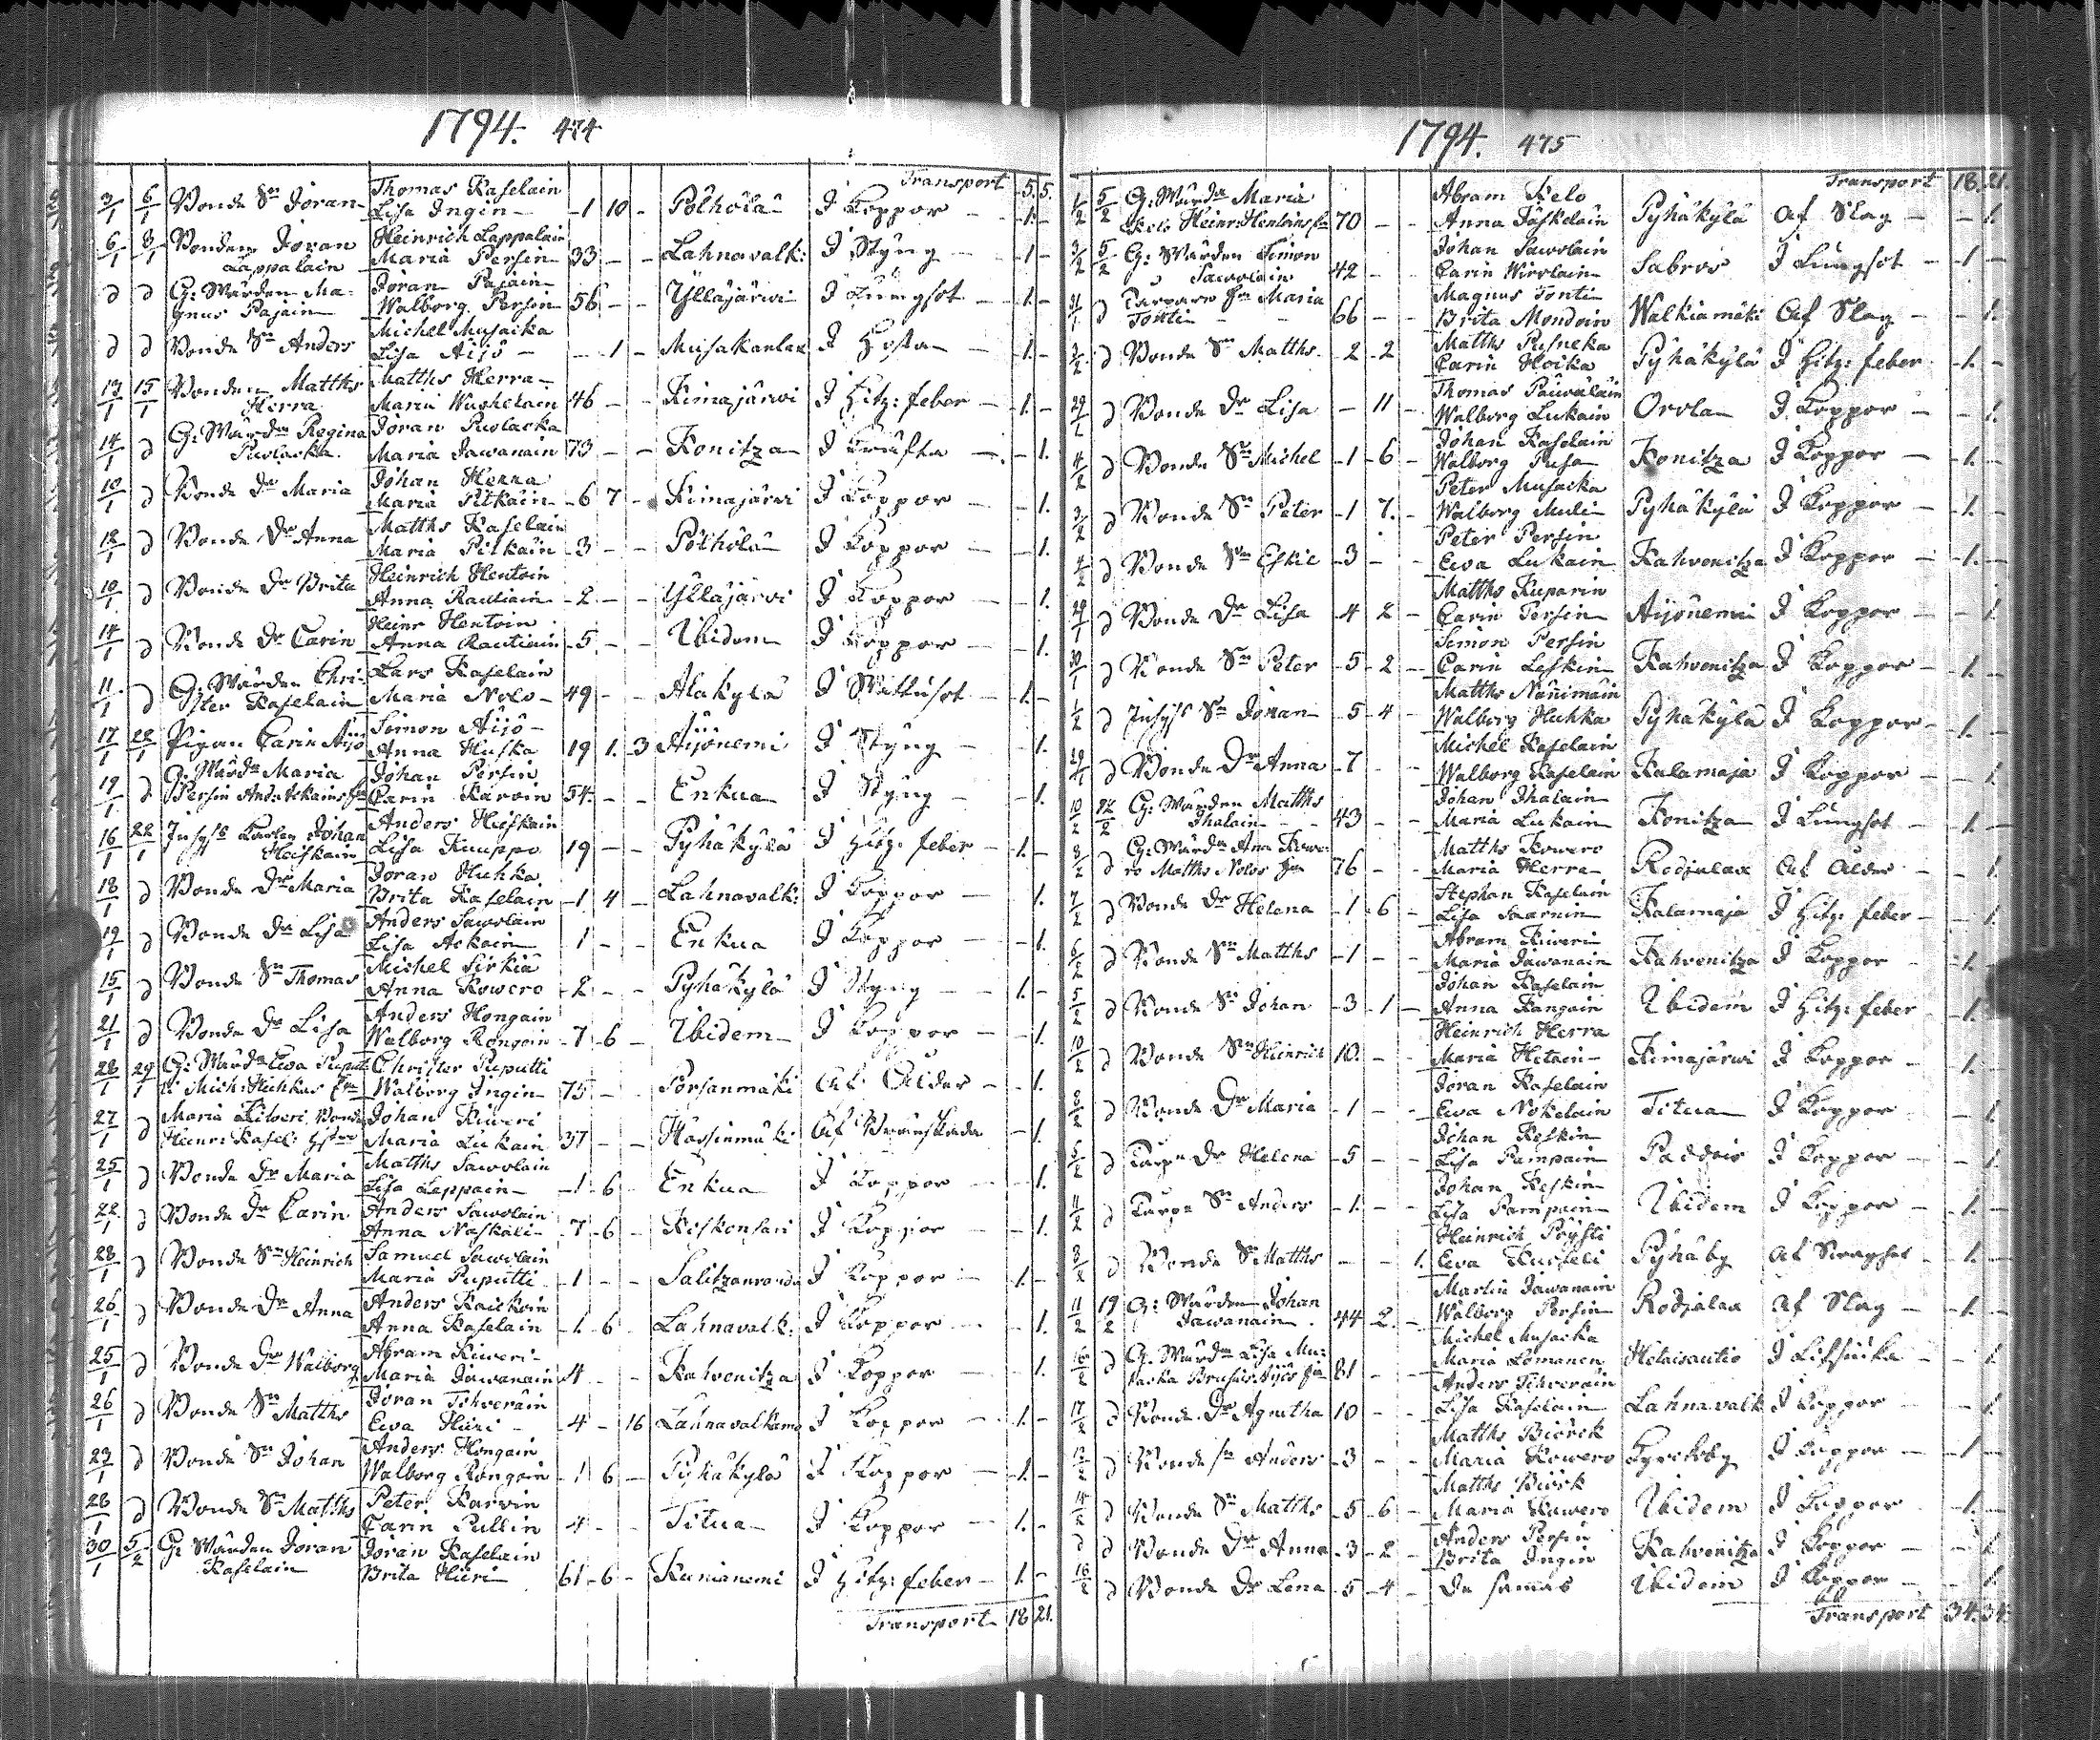 1794. 474
Transport 5. 5.
3/1 6/1 Bonde Sn Jöran Thomas Kaselain
Lisa Ingin 1 10 - Polhola I Koppor 1. -
6/1 8/1 Bonden Jöran Heinrich Lappalain
Lappalain Maria Persin 33 - - Lahnavalk: I Styng 1 -
d d G: Mården Ma- Jöran Pajain
gnus Pajain Walborg Persin 56 - - Yllajärwi I Lungsot 1. -
d d Bonde Sn Anders Michel Musacka
Lisa Äijö - 1 - Musakanlax I Hosta 1. -
13/1 15/1 Bonden Matths Matths Herra
Herra Maria Waskelain 46 - - Kimajärwi I Hitz: feber 1. -
14/1 d G: Mårdn Regina Jöran Puolacka
Puolacka Maria Jawanain 73 - - Konitza I - 1.
10/1 d Bonde Dr Maria Johan Herra
Maria Pitkäin 6 7 - Kimajärwi I Koppor - 1.
12/1 d Bonde Dr Anna Matths Kaselain
Maria Pitkäin 3 - - Polhola I Koppor - 1.
10/1 d Bonde Dr Brita Heinrich Hentoin
Anna Rautiain 2 - - Yllajärvi I Koppor - 1.
14/1 d Bonde Dr Carin Heinr Hentoin
Anna Rautiain 5 - - Ibidem I Koppor - 1.
11/1 d G: Mården Chri- Lars Kaselain
ster Kaselain Maria Nolo 49 - - Alakylä I Wattusot 1. -
17/1 22/1 Pigan Carin Äijö Simon Äijö
Anna Huska 19 1. 3 Äijönemi I Styng - 1.
19/1 d G: Mårdn Maria Johan Persin
Persin Carin Karvin 54 - - Enkua I Styng - 1.
16/1 22/1 Karlen Johan Anders Heiskain
Heiskain Lisa Kuuppo 19 - - Pyhäkylä I Hitz: feber 1. -
18/1 d Bonde Dr Maria Jöran Huhka
Brita Kaselain 1 4 - Lahnavalk: I Koppor - 1.
19/1 d Bonde Dr Lisa Anders Sawolain
Lisa Ackain 1 - - Enkua I Koppor - 1.
15/1 d Bonde Sn Thomas Michel Sirkiä
Anna Kowero 2 - - Pyhäkylä I Styng 1. -
21/1 d Bonde Dr Lisa Anders Hongain
Walborg Rongain 7 6 - Ibidem I Koppor - 1.
28/1 29/1 G: Mårdn Ewa Puput- Christer Puputti
ti Mich: Huhkas Walborg Ingin 75 - - Porsanmäki Af Ålder - 1.
27/1 d Maria Kiweri Bonde Johan Kiweri
Heinr: Kasel: Maria Lukain 37 - - Hassinmäki Af - 1.
25/1 d Bonde Dr Maria Matths Sawolain
Lisa Leppain 1 6 - Enkua I Koppor - 1.
22/1 d Bonde Dr Carin Anders Sawolain
Anna Naskali 7 6 - Kiskonsari I Koppor - 1.
28/1 d Bonde Sn Heinrich Samuel Sawolain
Maria Puputti 1 - - Salitzanranda I Koppor 1. -
26/1 d Bonde Dr Anna Anders Kaickoin
Anna Kaselain 1. 6 - Lahnavalk: I Koppor - 1.
25/1 d Bonde Dr Walborg Abram Kiweri
Maria Jawanain 4 - - Kahvonitza I Koppor - 1.
26/1 d Bonde Sn Matths Jöran Tihveräin
Ewa Hiiri 4 - 16 Lahnavalkama I Koppor 1. -
23/1 d Bonde Sn Johan Anders Hongain
Walborg Rongain 1 6 - Pyhäkylä I Koppor 1. -
28/1 d Bonde Sn Matths Peter Karvin
Carin Pullin 4 - - Titua I Koppor 1. -
30/1 5/2 G: Mården Jöran Jöran Kaselain
Kaselain Brita Hiiri 61 6 - Kunianemi I Hitz: feber 1. -
Transport 18 21.
1794. 475
Transport 18. 21.
1/2 5/2 G: Mårdn Maria Abram Kelo
Kelo Heinr: Hentoins 70 - - Anna Jäskeläin Pyhäkylä Af Slag - 1.
3/2 5/2 G: Mården Simon Johan Sawolain
Sawolain 42 - - Carin Wirolain Sabros I Lungsot 1 -
31/1 d Maria Magnus Tonti
Tontin 66 - - Brita Mondoin Walkiamäki Af Slag - 1.
3/2 d Bonde Sn Matths 2 2 Matths Pusneka
Carin Hoika Pyhäkylä I Hitz: feber 1. -
29/1 d Bonde Dr Lisa - 11 - Thomas Päiwäläin
Walborg Lukain Orola I Koppor - 1.
4/2 d Bonde Sn Michel 1 6 - Johan Kaselain
Walborg Pusa Konitza I Koppor 1. -
3/2 d Bonde Sn Peter 1 7. - Peter Musacka
Walborg Muli Pyhäkylä I Koppor 1. -
4/2 d Bonde Sn Eskil 3 - - Peter Persin
Ewa Lukain Kahvonitza I Koppor 1. -
29/1 d Bonde Dr Lisa 4 2 - Matths Kuparin
Carin Persin Äijönemi I Koppor - 1.
30/1 d Bonde Sn Peter 5 2 - Simon Persin
Carin Leskin Kahvonitza I Koppor 1. -
1/2 d Sn Jöran 5 4 - Matths Nänimäin
Walborg Huhka Pyhäkylä I Koppor 1. -
29/1 d Bonde Dr Anna 7 - - Michel Kaselain
Walborg Kaselain Kalamaja I Koppor - 1.
10/2 12/2 G: Mården Matths Johan Ihalain
Ihalain 43 - - Maria Lukain Konitza I Lungsot 1. -
8/2 d G: Mårdn Ann Kowe- Matths Kowero
ro Matths Nolos 76 - - Maria Herra Rodjalax Af Ålder - 1.
7/2 d Bonde Dr Helena 1 6 - Stephan Kaselain
Lisa Saarnin Kalamaja I Hitz: feber - 1.
6/2 d Bonde Sn Matths 1 - - Abram Kiweri
Maria Jawanain Kahvonitza I Koppor 1. -
5/2 d Bonde Sn Johan 3 1 - Johan Kaselain
Anna Kangain Ibidem I Hitz: feber 1. -
10/2 d Bonde Sn Heinrich 10. - - Heinrich Herra
Maria Hitain Kimajärwi I Koppor 1. -
8/2 d Bonde Dr Maria 1 - - Jöran Kaselain
Ewa Nokelain Titua I Koppor - 1.
5/2 d Dr Helena 5 - - Johan Keskin
Lisa Pampain I Koppor - 1.
11/2 d Sn Anders 1 - - Johan Keskin
Lisa Pampain Ibidem I Koppor 1. -
3/2 d Bonde Sn Matths - - 1. Heinrich Pöysti
Ewa Kurfeli Pyhäby Af 1. -
11/2 19/2 G: Mården Johan Martin Jawanain
Jawanain 44 2. - Walborg Persin Rodjalax Af Slag 1. -
16/2 d G: Mårdn Lisa Mu- Michel Musacka
sacka 81 - - Maria Lomanen Hetaisautio I - 1
17/2 d Bonde Dr Agnetha 10 - - Anders Tihveräin
Lisa Kaselain Lahnavalk I Koppor - 1
12/2 d Bonde Sn Anders 3 - - Matths Biörck
Maria Kowero Kyrckoby I Koppor 1 -
14/2 d Bonde Sn Matths 5 6 - Matths Biörk
Maria Kowero Ibidem I Koppor 1. -
d d Bonde Dr Anna 3 2 - Anders Persin
Brita Ingin Kahvonitza I Koppor - 1.
16/2 d Bonde Dr Lena 5 4 - De samas Ibidem I Koppor - 1.
Transport 34. 34.